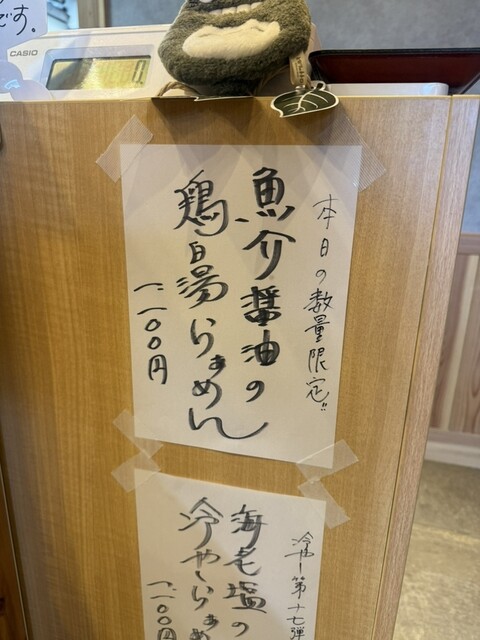 です。
CASIO
本日の数量限定!!
魚介醤油の
鶏白湯らぁめん
一、一〇〇円
冷やし第十七弾
海老塩の
冷やしらぁめ
一、一〇〇円